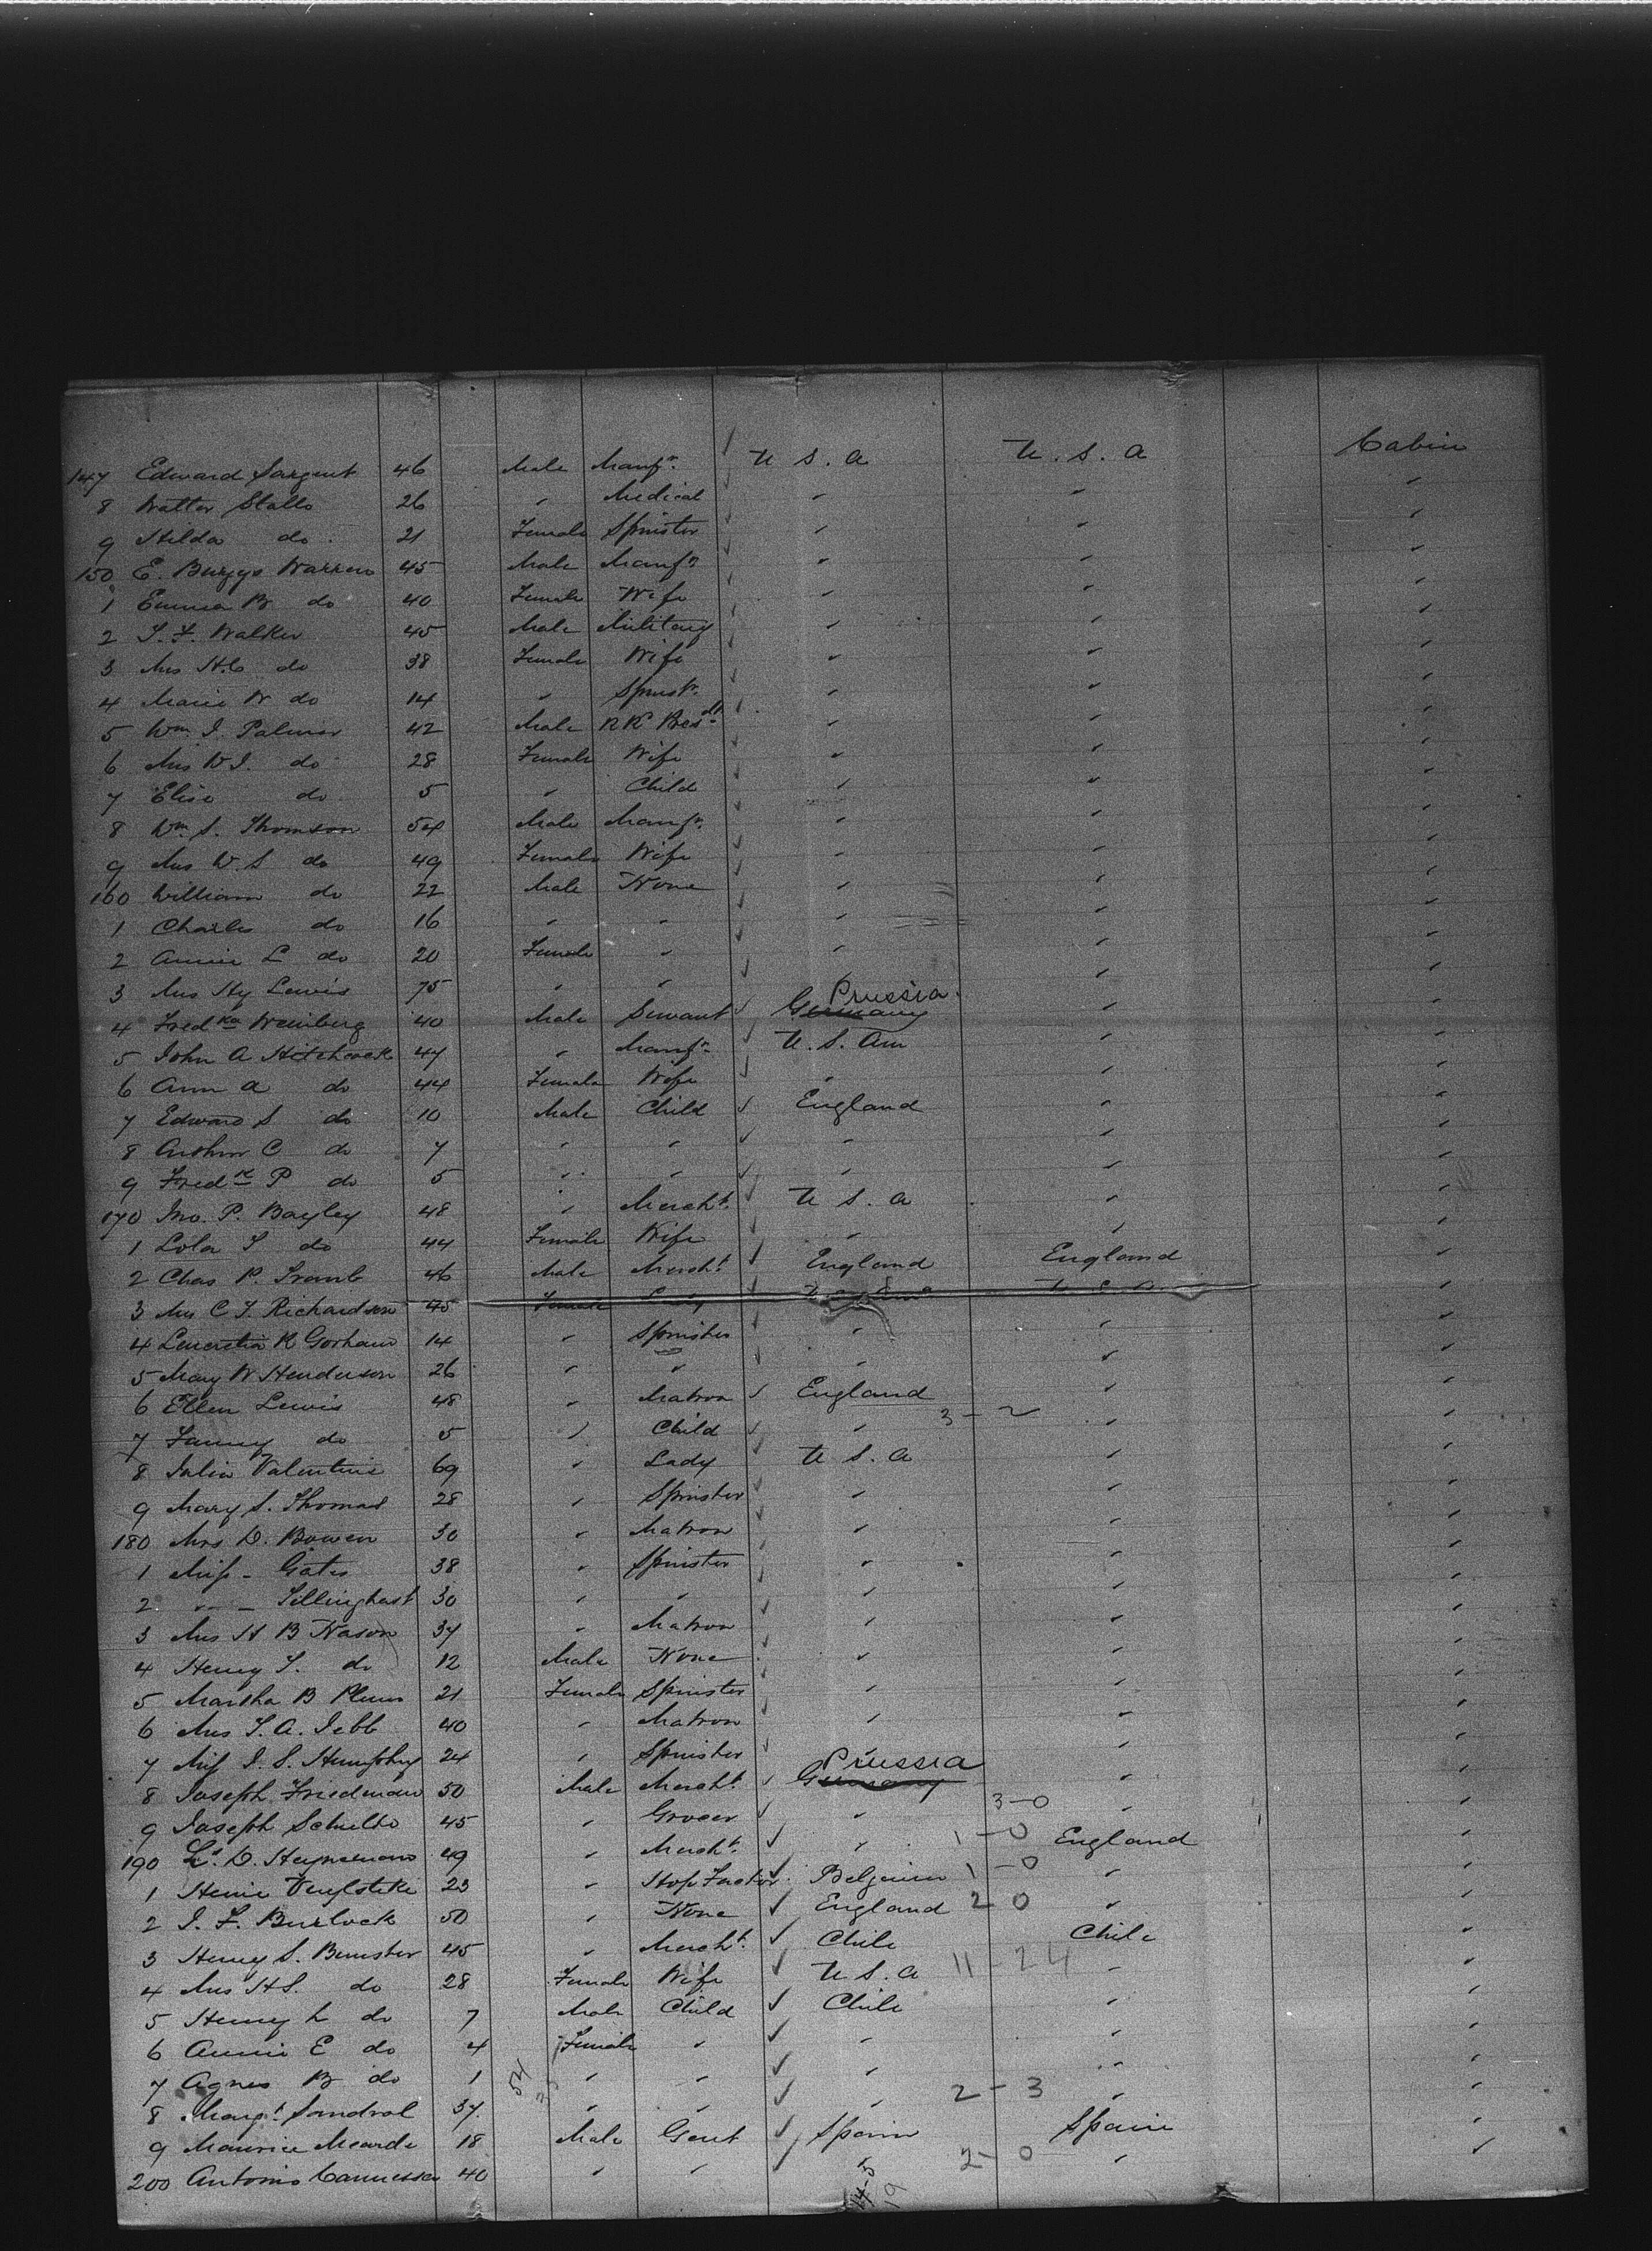 147 Edward Sargent 46 Male Manfr. U S. A U. S. A Cabin
8 Walter Stallo 26 " Medical " " "
9 Hilda do. 21 Female Spinster " " "
150 E. Burgys Warren 45 Male Manfr " " "
1 Emma B do 40 Female Wife " " "
2 S. F. Walker 45 Male Military " " "
3 Mrs H.C do 38 Female Wife " " "
4 Marie W do 14 " Spinstr. " " "
5 Wm J. Palmer 42 Male RR Presdt " " "
6 Mrs W J. do 28 Female Wife " " "
7 Elsie do 5 " Child " " "
8 Wm. S. Thomson 54 Male Manfr. " " "
9 Mrs W. S do 49 Female Wife " " "
160 William do 22 Male None " " "
1 Charles do 16 " " " " "
2 Annie L do 20 Female " " " "
3 Mrs Hy Lewis 75 " " " " "
Prussia.
4 Fredka Weinberg 40 Male Servant Germany " "
5 John A Hitchcock 47 " Manfr. U. S. Am " "
6 Ann A do 44 Female Wife " " "
7 Edward S do 10 Male Child England " "
8 Arthur C do 7 " " " " "
9 Fredk P do 5 " " " " "
170 Jno. P. Bayley 48 " Mercht. U S. A " "
1 Lola S do 44 Female Wife " " "
2 Chas P. Tramb 46 Male Mercht. England England "
3 Mrs C. T. Richardson 45 Female Lady
4 Lucretia R Gorham 14 " Spinster " " "
5 Mary W Henderson 26 " " " " "
6 Ellen Lewis 48 " Matron England " "
3-2
7 Fanny do 5 " Child " " "
8 Julia Valentine 69 " Lady U S. A " "
9 Mary S. Thomas 28 " Spinster " " "
180 Mrs D. Bowen 30 " Matron " " "
1 Miss - Gates 38 " Spinster " " "
2 " - Tillinghast 30 " " " " "
3 Mrs H B Nason 34 " Matron " " "
4 Henry T. do 12 Male None " " "
5 Martha B Plum 21 Female Spinster " " "
6 Mrs T. A. Jebb 40 " Matron " " "
7 Miss J. S. Humphry 24 " Spinster " " "
Prussia
8 Joseph Friedman 50 Male Mercht. Germany " "
9 Joseph Schulte 45 " Grocer " 3-0 " "
190 D. Heyneman 49 " Mercht. " 1-0 England "
1 23 " Hop Factor Belgium 1-0 " "
2 J. F. Burlock 50 " None England 2 0 " "
3 Henry S. Bunster 45 " Mercht. Chile Chile "
4 Mrs H S. do 28 Female Wife U. S. A 11-24 " "
5 Henry L do 7 Male Child Chile " "
6 Annie E do 4 Female " " " "
7 Agnes B do 1 " " " " "
8 Margt Sandral 37. " " " 2-3 " "
9 Maurice 18 Male Gent Spain Spain "
200 Antonio 40 " " " 2-0 " "
54
14-3
19